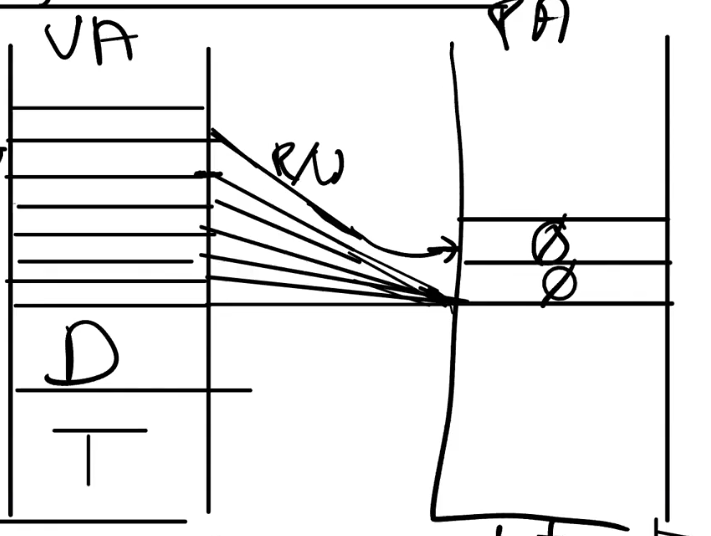 VA
PA
R/W
Ø
Ø
D
T